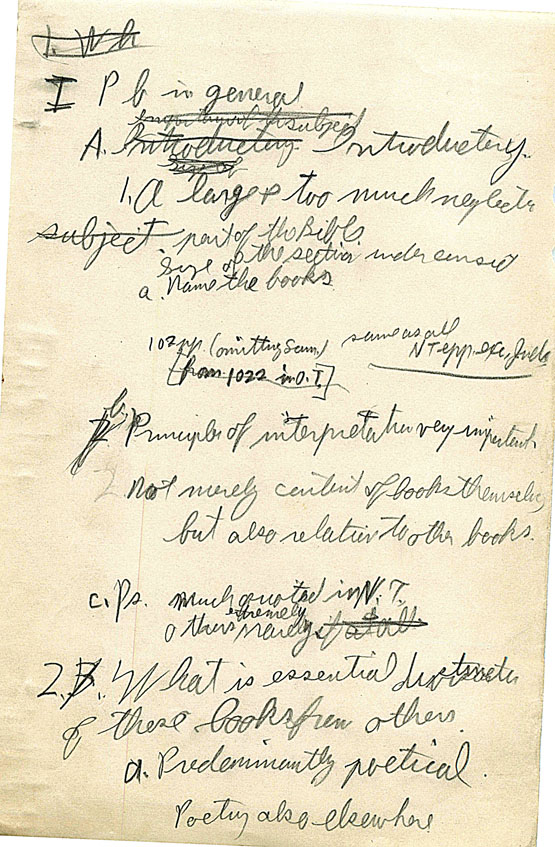 1. Wh
I P b in general
A. Introductory Introductory.
Size of
1. A large & too much neglected
subject part of the Bible
Size of the section under consid
a. Name the books
102 pp. (omitting Lam.) same as all
N T epp. exc. Jude
[from 1022 in O.T.]
b. Principles of interpretation very important
2 Not merely content of books themselves
but also relation to other books.
c. Ps. much quoted in N. T.
Others extremely rarely if at all
2. B. What is essential
of these books from others.
a. Predominantly poetical.
Poetry also elsewhere